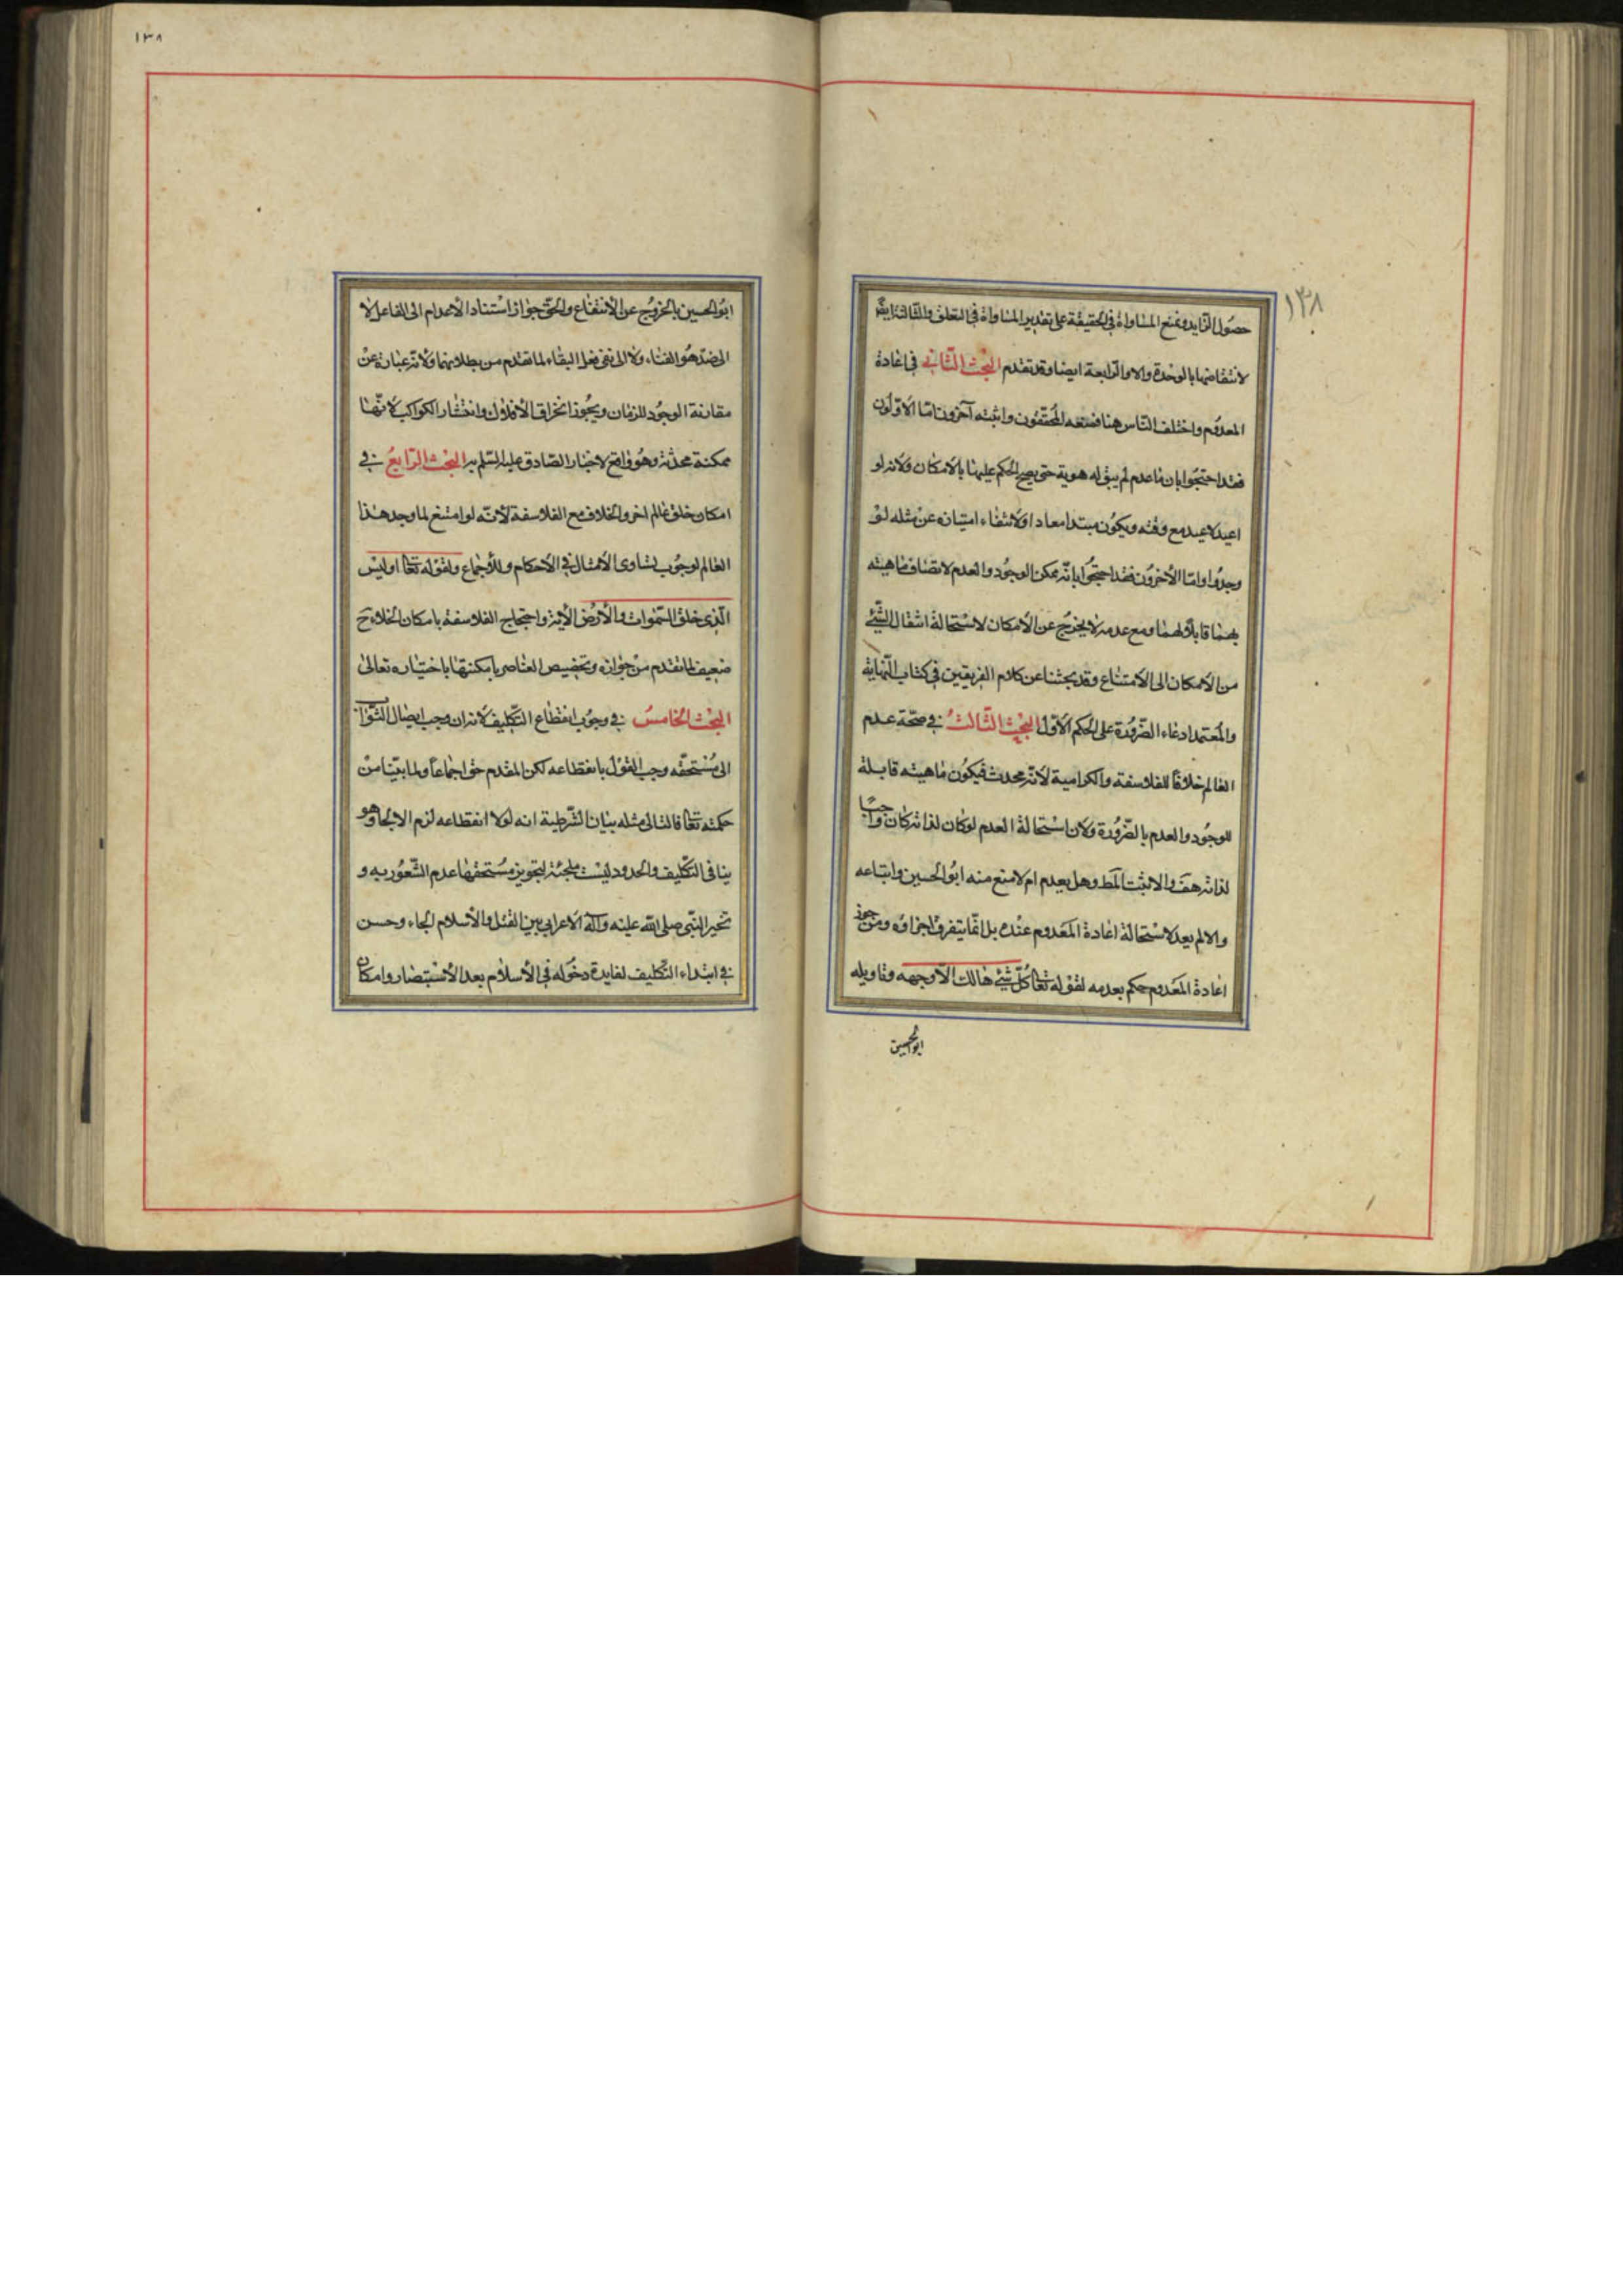 ١٣٨
حصول الزايد ونمنع المساواة فى الحقيقة على تقدير المساواة فى التعلق والثالثة ايضًا
لانتقاضها بالوحدة والا والرابعة ايضا وقد تقدم البحث الثانى فى اعادة
المعدوم واختلف الناس هنا فمنعه المحققون واثبته آخرون امّا الاوّلون
فقد احتجوا بان ما عدم لم يبق له هوية حتى يصح الحكم عليها بالامكان ولانه لو
اعيد لاعيد مع وقته ويكون مبتدا معادا ولانتفاء امتيازه عن مثله لو
وجدوا وامّا الآخرون فقد احتجّوا بانّه ممكن الوجود والعدم لاتصاف ماهيته
بهما قابلة لهما ومع عدمه لا يخرج عن الامكان لاستحالة انتقال الشئ
من الامكان الى الامتناع وقد بحثنا عن كلام الفريقين فى كتاب النهاية
والمعتمد ادعاء الضّرورة على الحكم الاوّل البحث الثّالث فى صحّة عدم
العالم خلافًا للفلاسفة والكرامية لانّه محدث فيكون ماهيته قابلة
للوجود والعدم بالضّرورة ولان استحالة العدم لو كان لذاته كان واجبًا
لذاته هف والا لثبت المط وهل يعدم ام لا منع منه ابو الحسين واتباعه
والا لم يعد لاستحالة اعادة المعدوم عنده بل انّما يتفرق اجزاؤه ومن جوز
اعادة المعدوم حكم بعدمه لقوله تعا كلّ شئ هالك الّا وجهه وتاويله
ابو الحسين
١٣٨
ابو الحسين بالخروج عن الانتفاع والحق جواز استناد الاعدام الى الفاعل لا
الى ضدّ هو الفناء ولا الى نفى فعل البقاء لما تقدم من بطلانهما ولانّه عبارة عن
مقارنة الوجود للزمان ويجوز انخراق الافلاك وانتشار الكواكب لانّها
ممكنة محدثة وهو واقع لاخبار الصّادق عليه السّلم به البحث الرّابع فى
امكان خلق عالم اخر والخلاف مع الفلاسفة لانّه لو امتنع لما وجد هذا
العالم لوجوب تساوى الامثال فى الاحكام وللاجماع ولقوله تعا اوليس
الّذى خلق السّموات والارض الاية واحتجاج الفلاسفة بامكان الخلاء ح
ضعيف لما تقدم من جوازه وتخصيص العناصر بامكنتها باختياره تعالى
البحث الخامس فى وجوب انقطاع التّكليف لانه ان وجب ايصال الثّواب
الى مستحقّه وجب القول بانقطاعه لكن المقدم حق اجماعًا ولما بيّنا من
حكمته تعا فالتالى مثله بيان الشّرطية انه لولا انقطاعه لزم الالجا وهو
ينافى التكليف والحدود ليست ملجئة لتجويز مستحقها عدم الشّعور به و
تخير النّبى صلى الله عليه وآله الاعرابى بين القتل والاسلام الجاء وحسن
فى ابتداء التكليف لفايدة دخوله فى الاسلام بعد الاستبصار وامكان